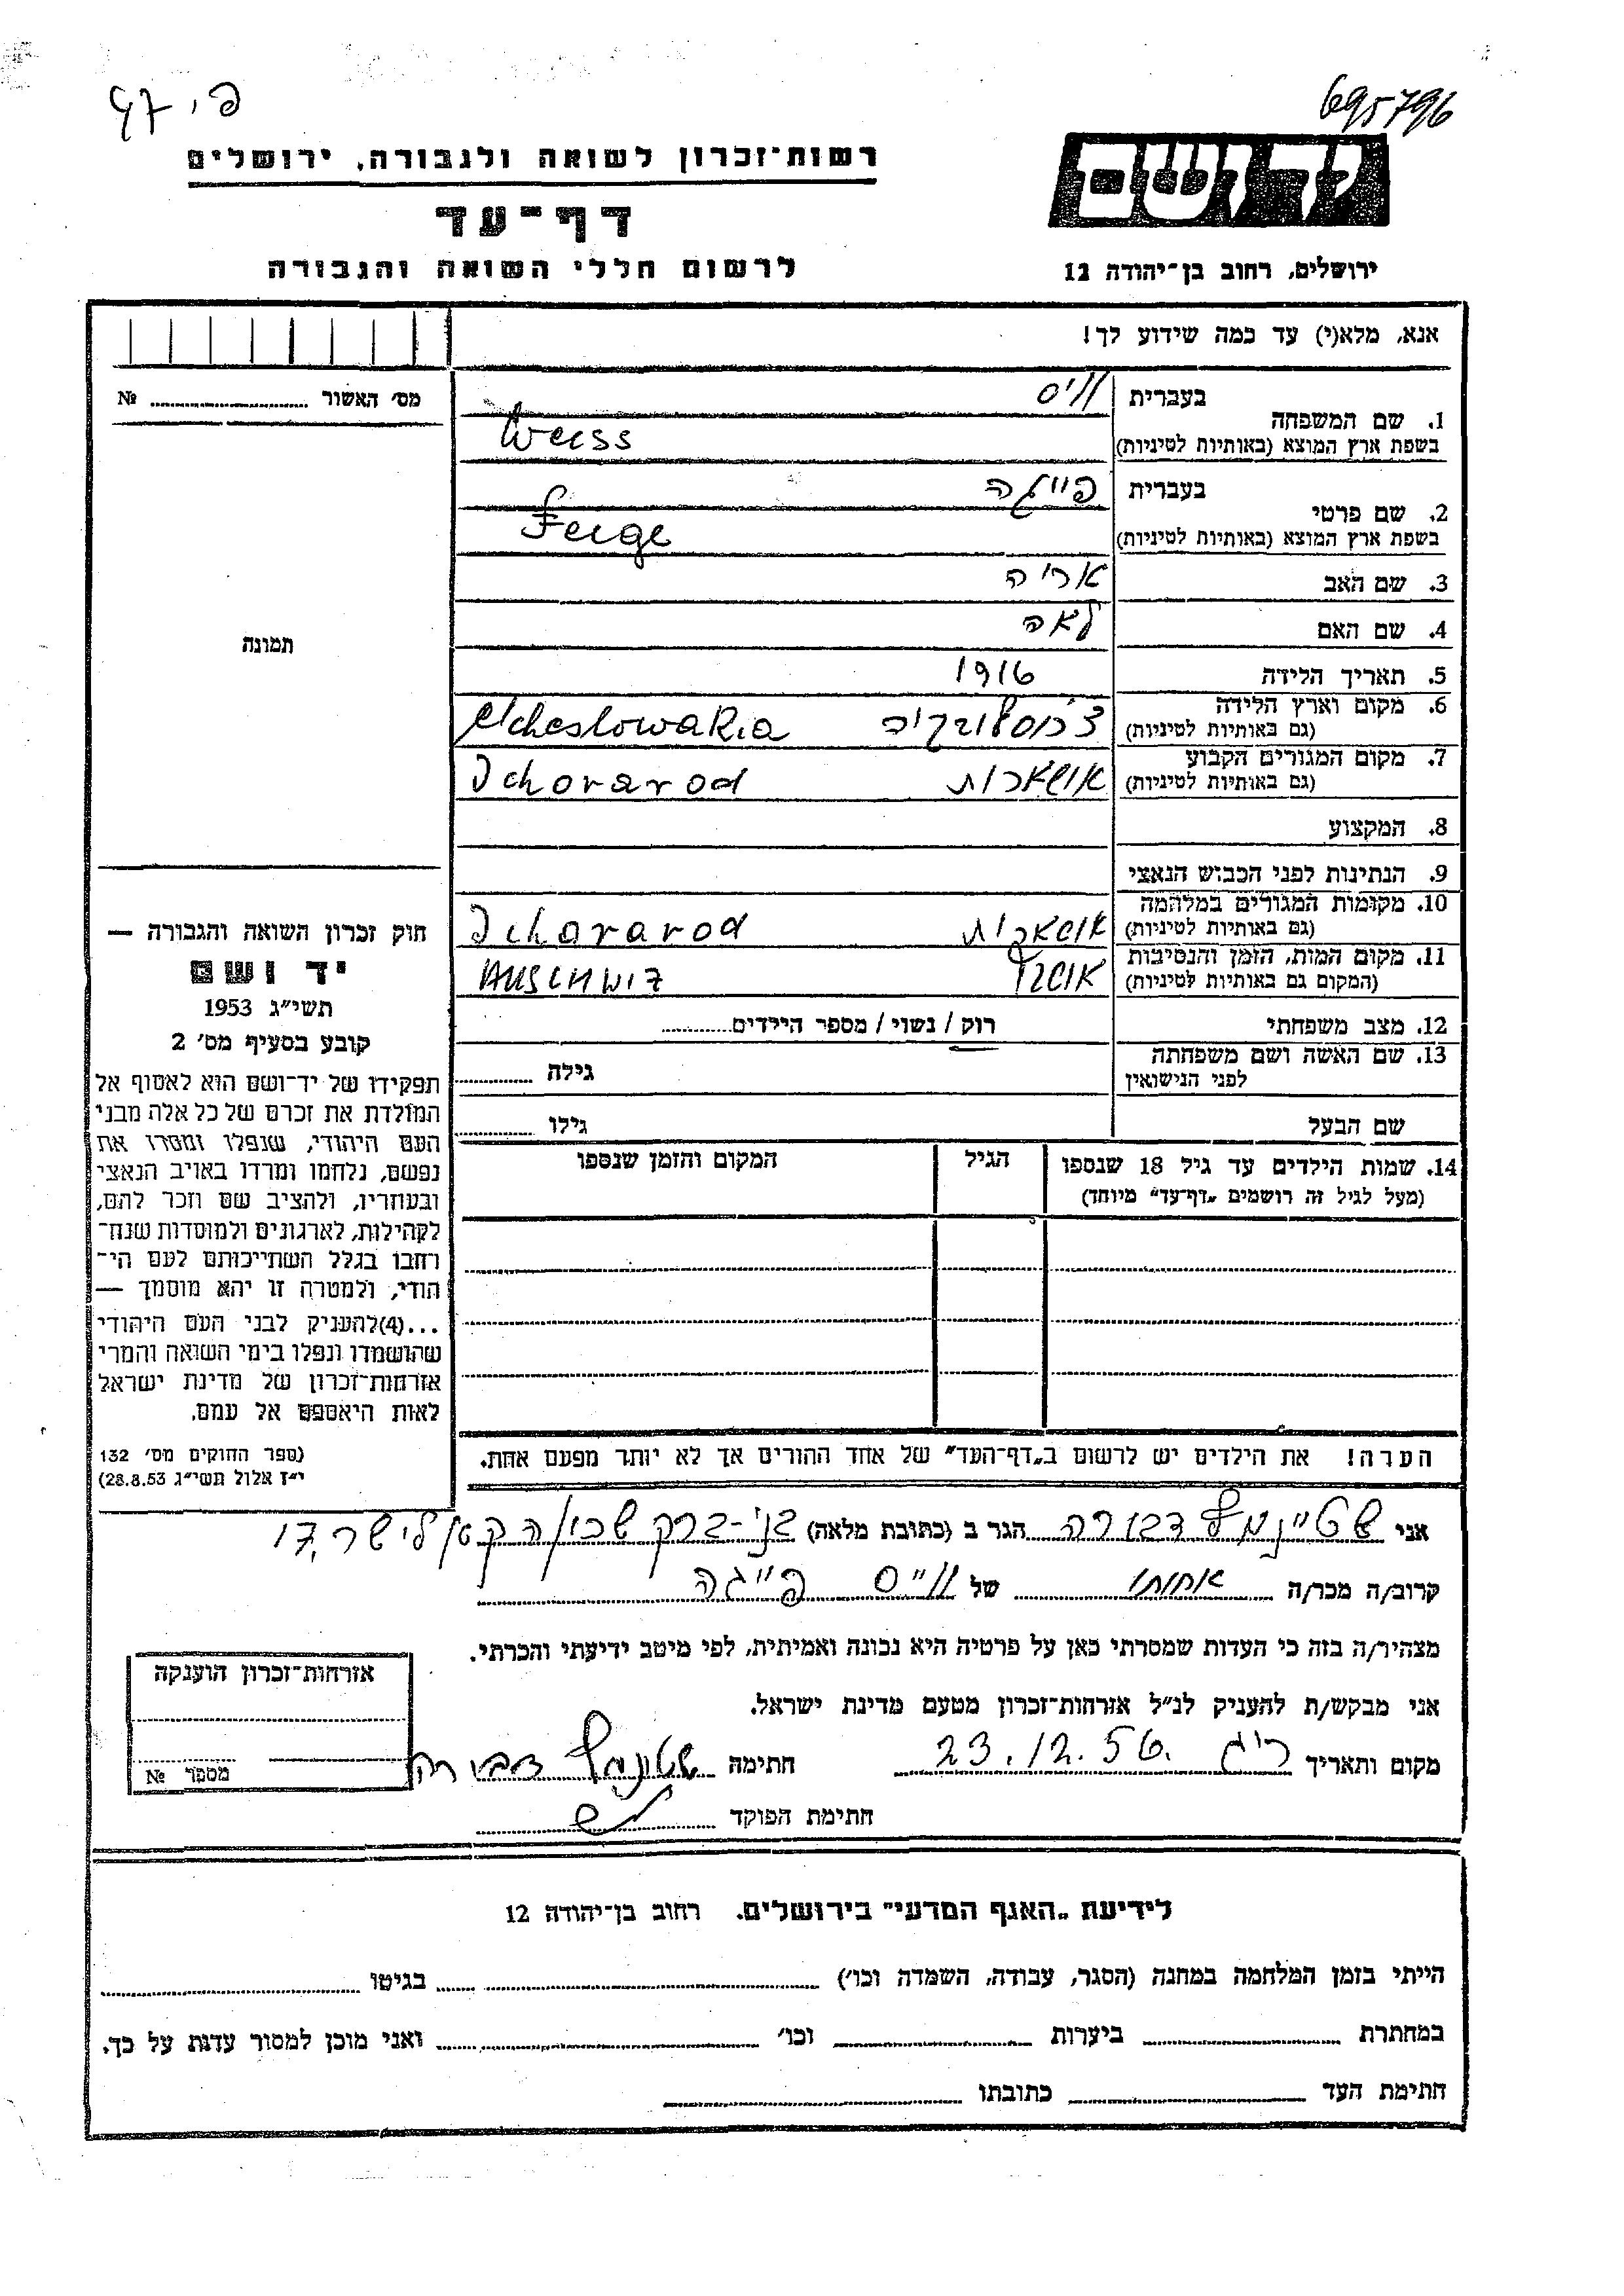 פי 47
695796
רשות־זכרון לשואה ולגבורה, ירושלים
דף־עד
לרשום חללי השואה והגבורה
יד ושם
ירושלים, רחוב בן־יהודה 12
אנא, מלא(י) עד כמה שידוע לך!
מס׳ האשור № 
1. שם המשפחה
בעברית ווייס
בשפת ארץ המוצא (באותיות לטיניות) Weiss
2. שם פרטי
בעברית פייגה
בשפת ארץ המוצא (באותיות לטיניות) Feige
3. שם האב אריה
4. שם האם לאה
5. תאריך הלידה 1916
6. מקום וארץ הלידה
(גם באותיות לטיניות) צ׳כוסלובקיה
7. מקום המגורים הקבוע
(גם באותיות לטיניות)
8. המקצוע
9. הנתינות לפני הכבוש הנאצי
10. מקומות המגורים במלחמה
(גם באותיות לטיניות)
11. מקום המות, הזמן והנסיבות
(המקום גם באותיות לטיניות)
12. מצב משפחתי רוק / נשוי / מספר הילדים
13. שם האשה ושם משפחתה
לפני הנישואין גילה
שם הבעל גילו
14. שמות הילדים עד גיל 18 שנספו
(מעל לגיל זה רושמים „דף־עד״ מיוחד)
הגיל
המקום והזמן שנספו
הערה! את הילדים יש לרשום ב„דף־העד״ של אחד ההורים אך לא יותר מפעם אחת.
תמונה
חוק זכרון השואה והגבורה —
יד ושם
תשי״ג 1953
קובע בסעיף מס׳ 2
תפקידו של יד־ושם הוא לאסוף אל
המולדת את זכרם של כל אלה מבני
העם היהודי, שנפלו ומסרו את
נפשם, נלחמו ומרדו באויב הנאצי
ובעוזריו, ולהציב שם וזכר להם,
לקהילות, לארגונים ולמוסדות שנח־
רחבו בגלל השתייכותם לעם הי־
הודי, ולמטרה זו יהא מוסמך —
...(4) להעניק לבני העם היהודי
שהושמדו ונפלו בימי השואה והמרי
אזרחות־זכרון של מדינת ישראל
לאות היאספם אל עמם.
(ספר החוקים מס׳ 132
י״ז אלול תשי״ג 28.8.53)
אני שטיינמץ דבורה הגר ב (כתובת מלאה) בני-ברק
קרוב/ה מכר/ה אחותו של ווייס פייגה
מצהיר/ה בזה כי העדות שמסרתי כאן על פרטיה היא נכונה ואמיתית, לפי מיטב ידיעתי והכרתי.
אני מבקש/ת להעניק לנ״ל אזרחות־זכרון מטעם מדינת ישראל.
מקום ותאריך ר״ג 23.12.56 חתימה שטינמץ דבורה
חתימת הפוקד
אזרחות־זכרון הוענקה
מספר №
לידיעת „האגף המדעי״ בירושלים. רחוב בן־יהודה 12
הייתי בזמן המלחמה במחנה (הסגר, עבודה, השמדה וכו׳) בגיטו
במחתרת ביערות וכו׳ ואני מוכן למסור עדות על כך.
חתימת העד כתובתו